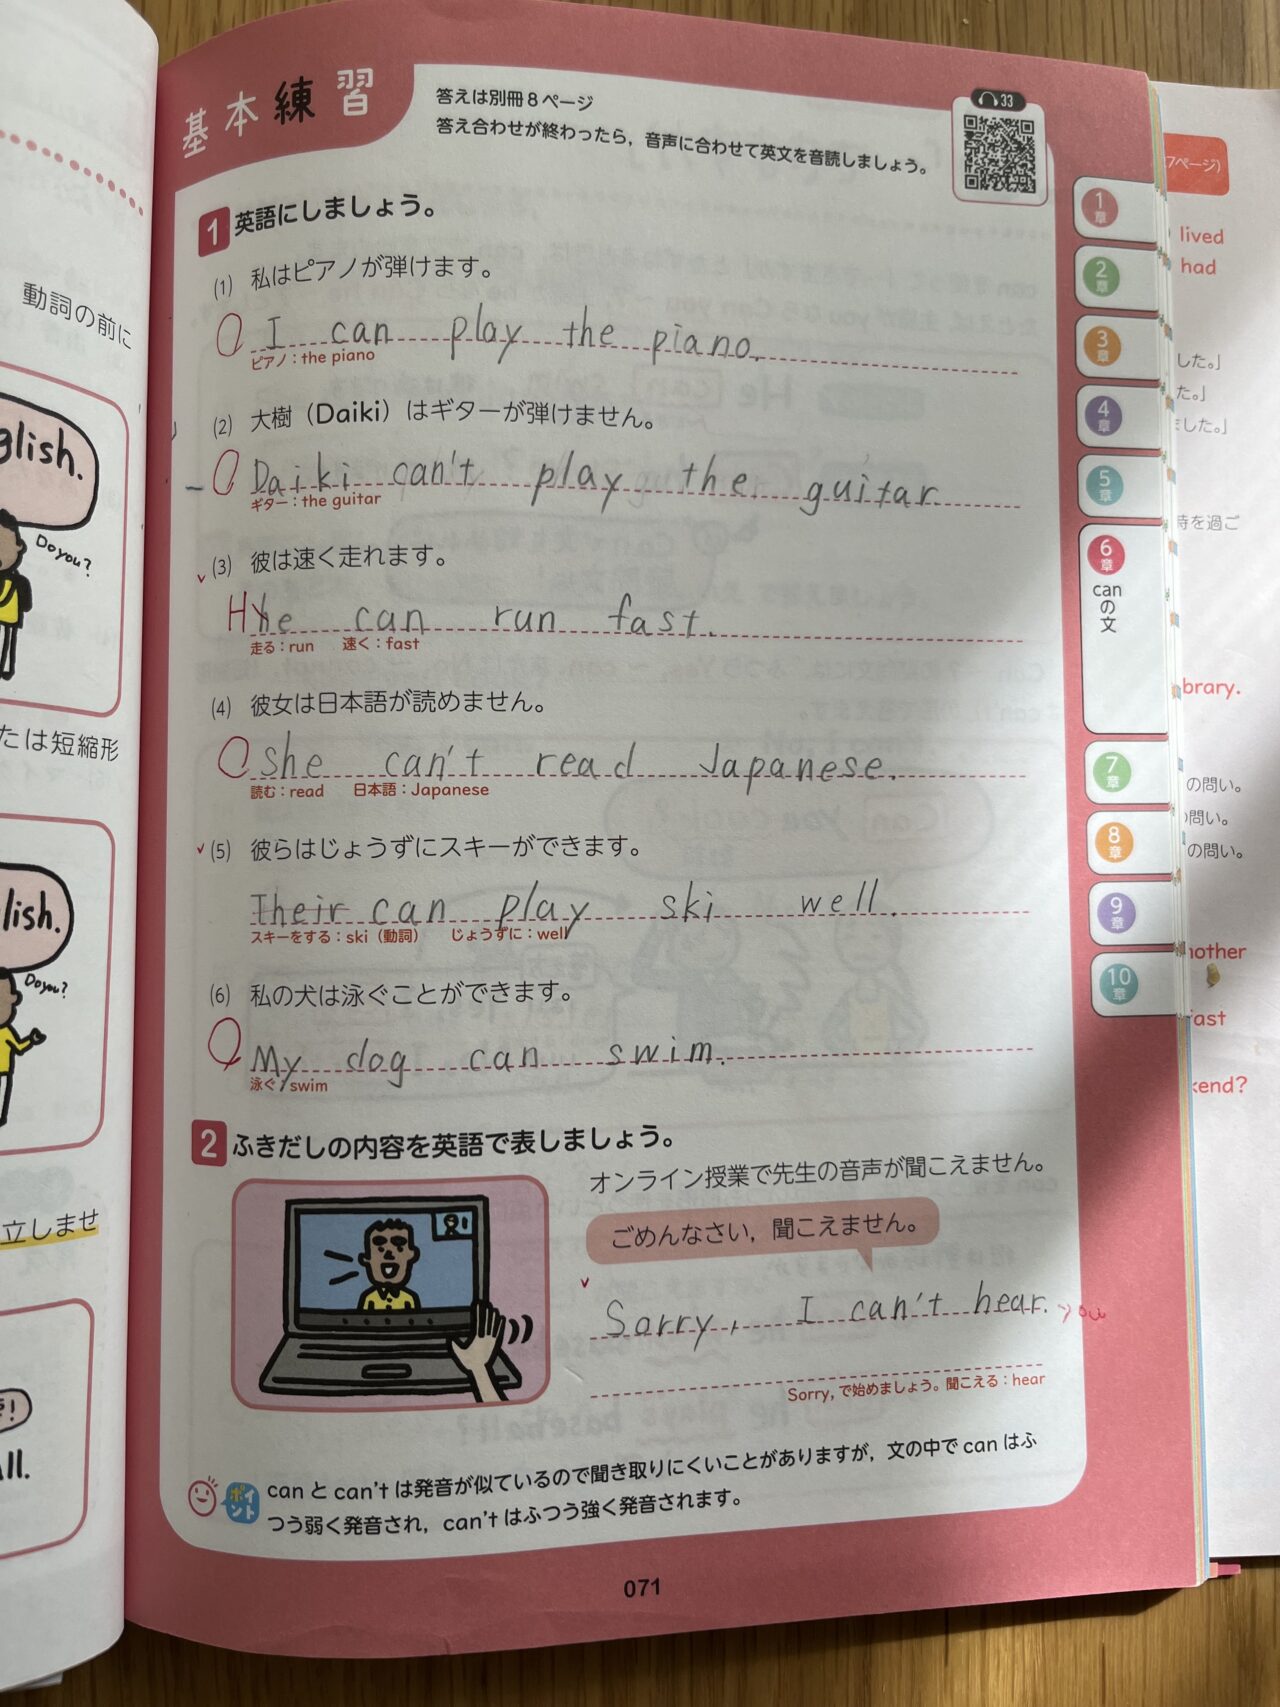 基本練習
答えは別冊8ページ
答え合わせが終わったら，音声に合わせて英文を音読しましょう。
33
1 英語にしましょう。
(1) 私はピアノが弾けます。
I can play the piano.
ピアノ：the piano
(2) 大樹（Daiki）はギターが弾けません。
Daiki can't play the guitar.
ギター：the guitar
(3) 彼は速く走れます。
H he can run fast.
走る：run 速く：fast
(4) 彼女は日本語が読めません。
She can't read Japanese.
読む：read 日本語：Japanese
(5) 彼らはじょうずにスキーができます。
Their can play ski well.
スキーをする：ski（動詞） じょうずに：well
(6) 私の犬は泳ぐことができます。
My dog can swim.
泳ぐ：swim
2 ふきだしの内容を英語で表しましょう。
オンライン授業で先生の音声が聞こえません。
ごめんなさい，聞こえません。
Sorry, I can't hear. you
Sorry, で始めましょう。聞こえる：hear
ポイント
canとcan'tは発音が似ているので聞き取りにくいことがありますが，文の中でcanはふ
つう弱く発音され，can'tはふつう強く発音されます。
071
1章
2章
3章
4章
5章
6章
canの文
7章
8章
9章
10章
動詞の前に
glish.
Do you?
たは短縮形
lish.
Do you?
立しませ
ll.
7ページ)
lived
had
した。」
た。」
ました。」
時を過ご
brary.
の問い。
の問い。
の問い。
nother
fast
kend?